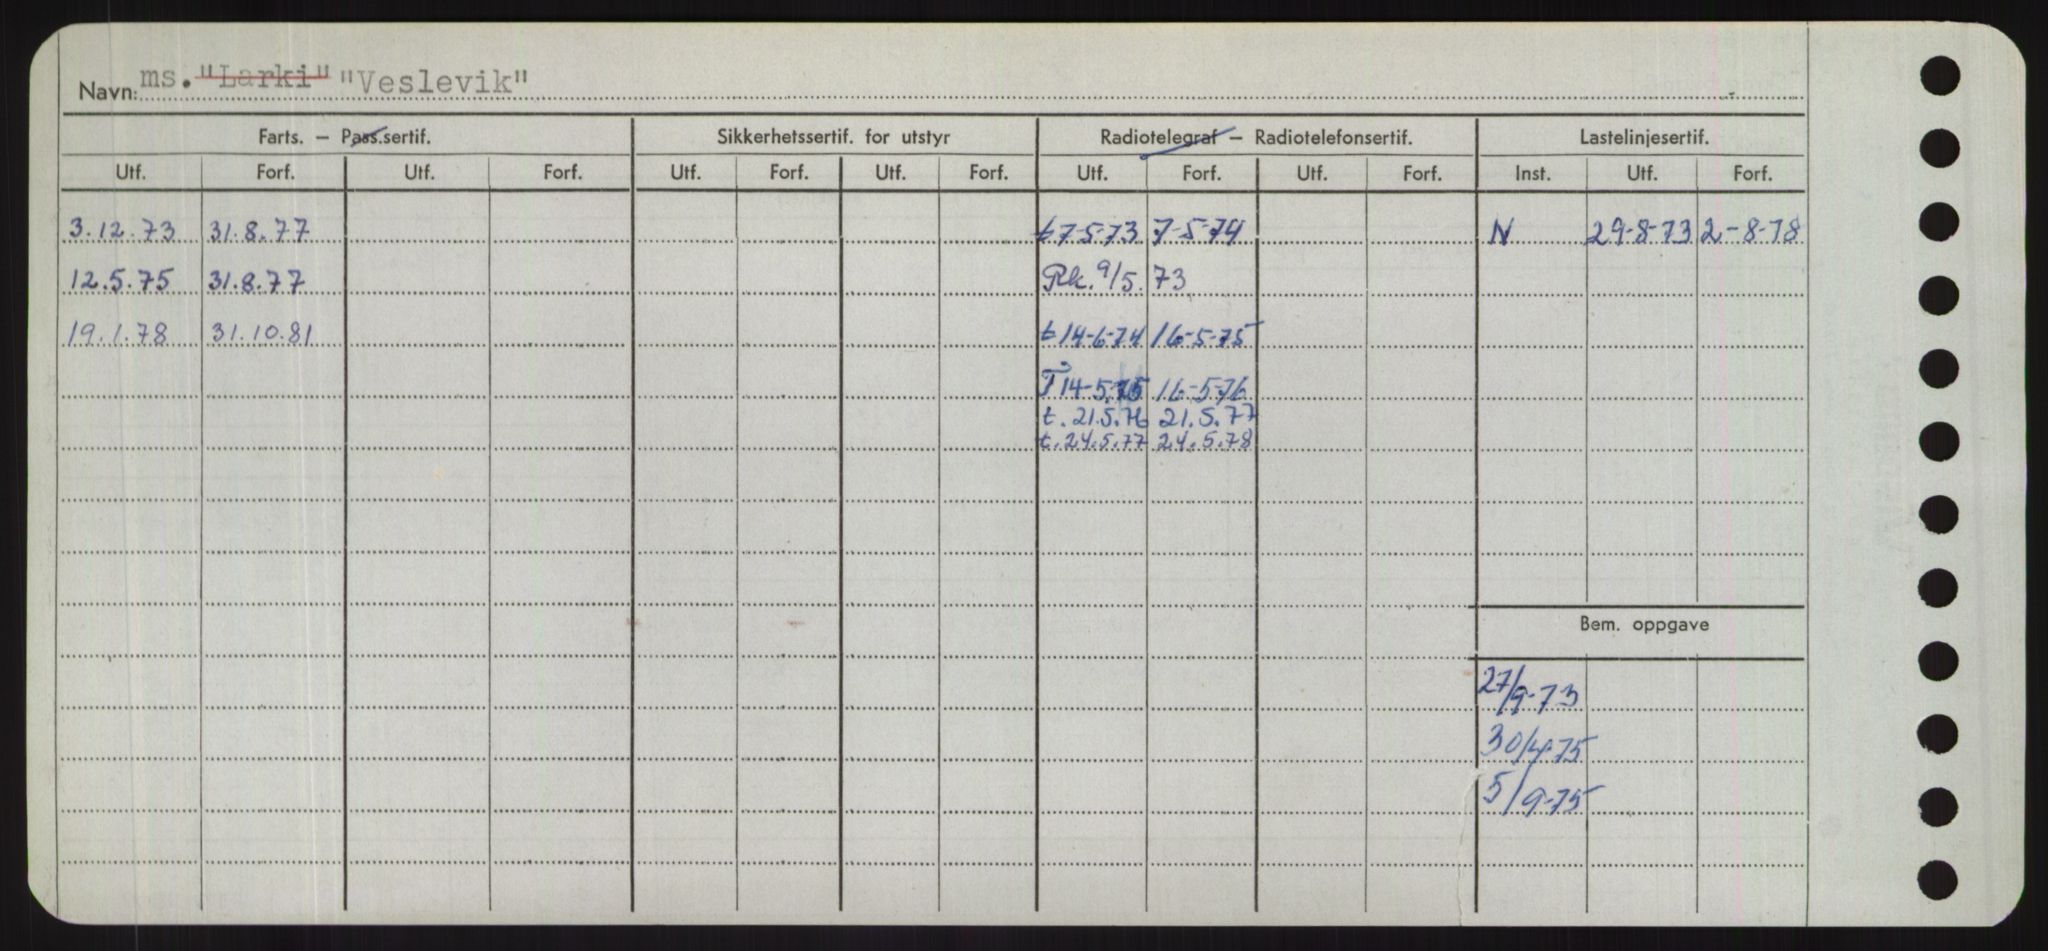 Navn: ms. "Larki" "Veslevik"
Farts. – Pass.sertif. Sikkerhetssertif. for utstyr Radiotelegraf – Radiotelefonsertif. Lastelinjesertif.
Utf. Forf. Utf. Forf. Utf. Forf. Utf. Forf. Utf. Forf. Utf. Forf. Inst. Utf. Forf.
3.12.73 31.8.77 t 7-5-73 7-5-74 N 29-8-73 2-8-78
12.5.75 31.8.77 Rk. 9/5. 73
19.1.78 31.10.81 t 14-6-74 16-5-75
T 14-5.75 16-5-76
t. 21.5.76 21.5.77
t. 24.5.77 24.5.78
Bem. oppgave
27/9-73
30/4-75
5/9-75